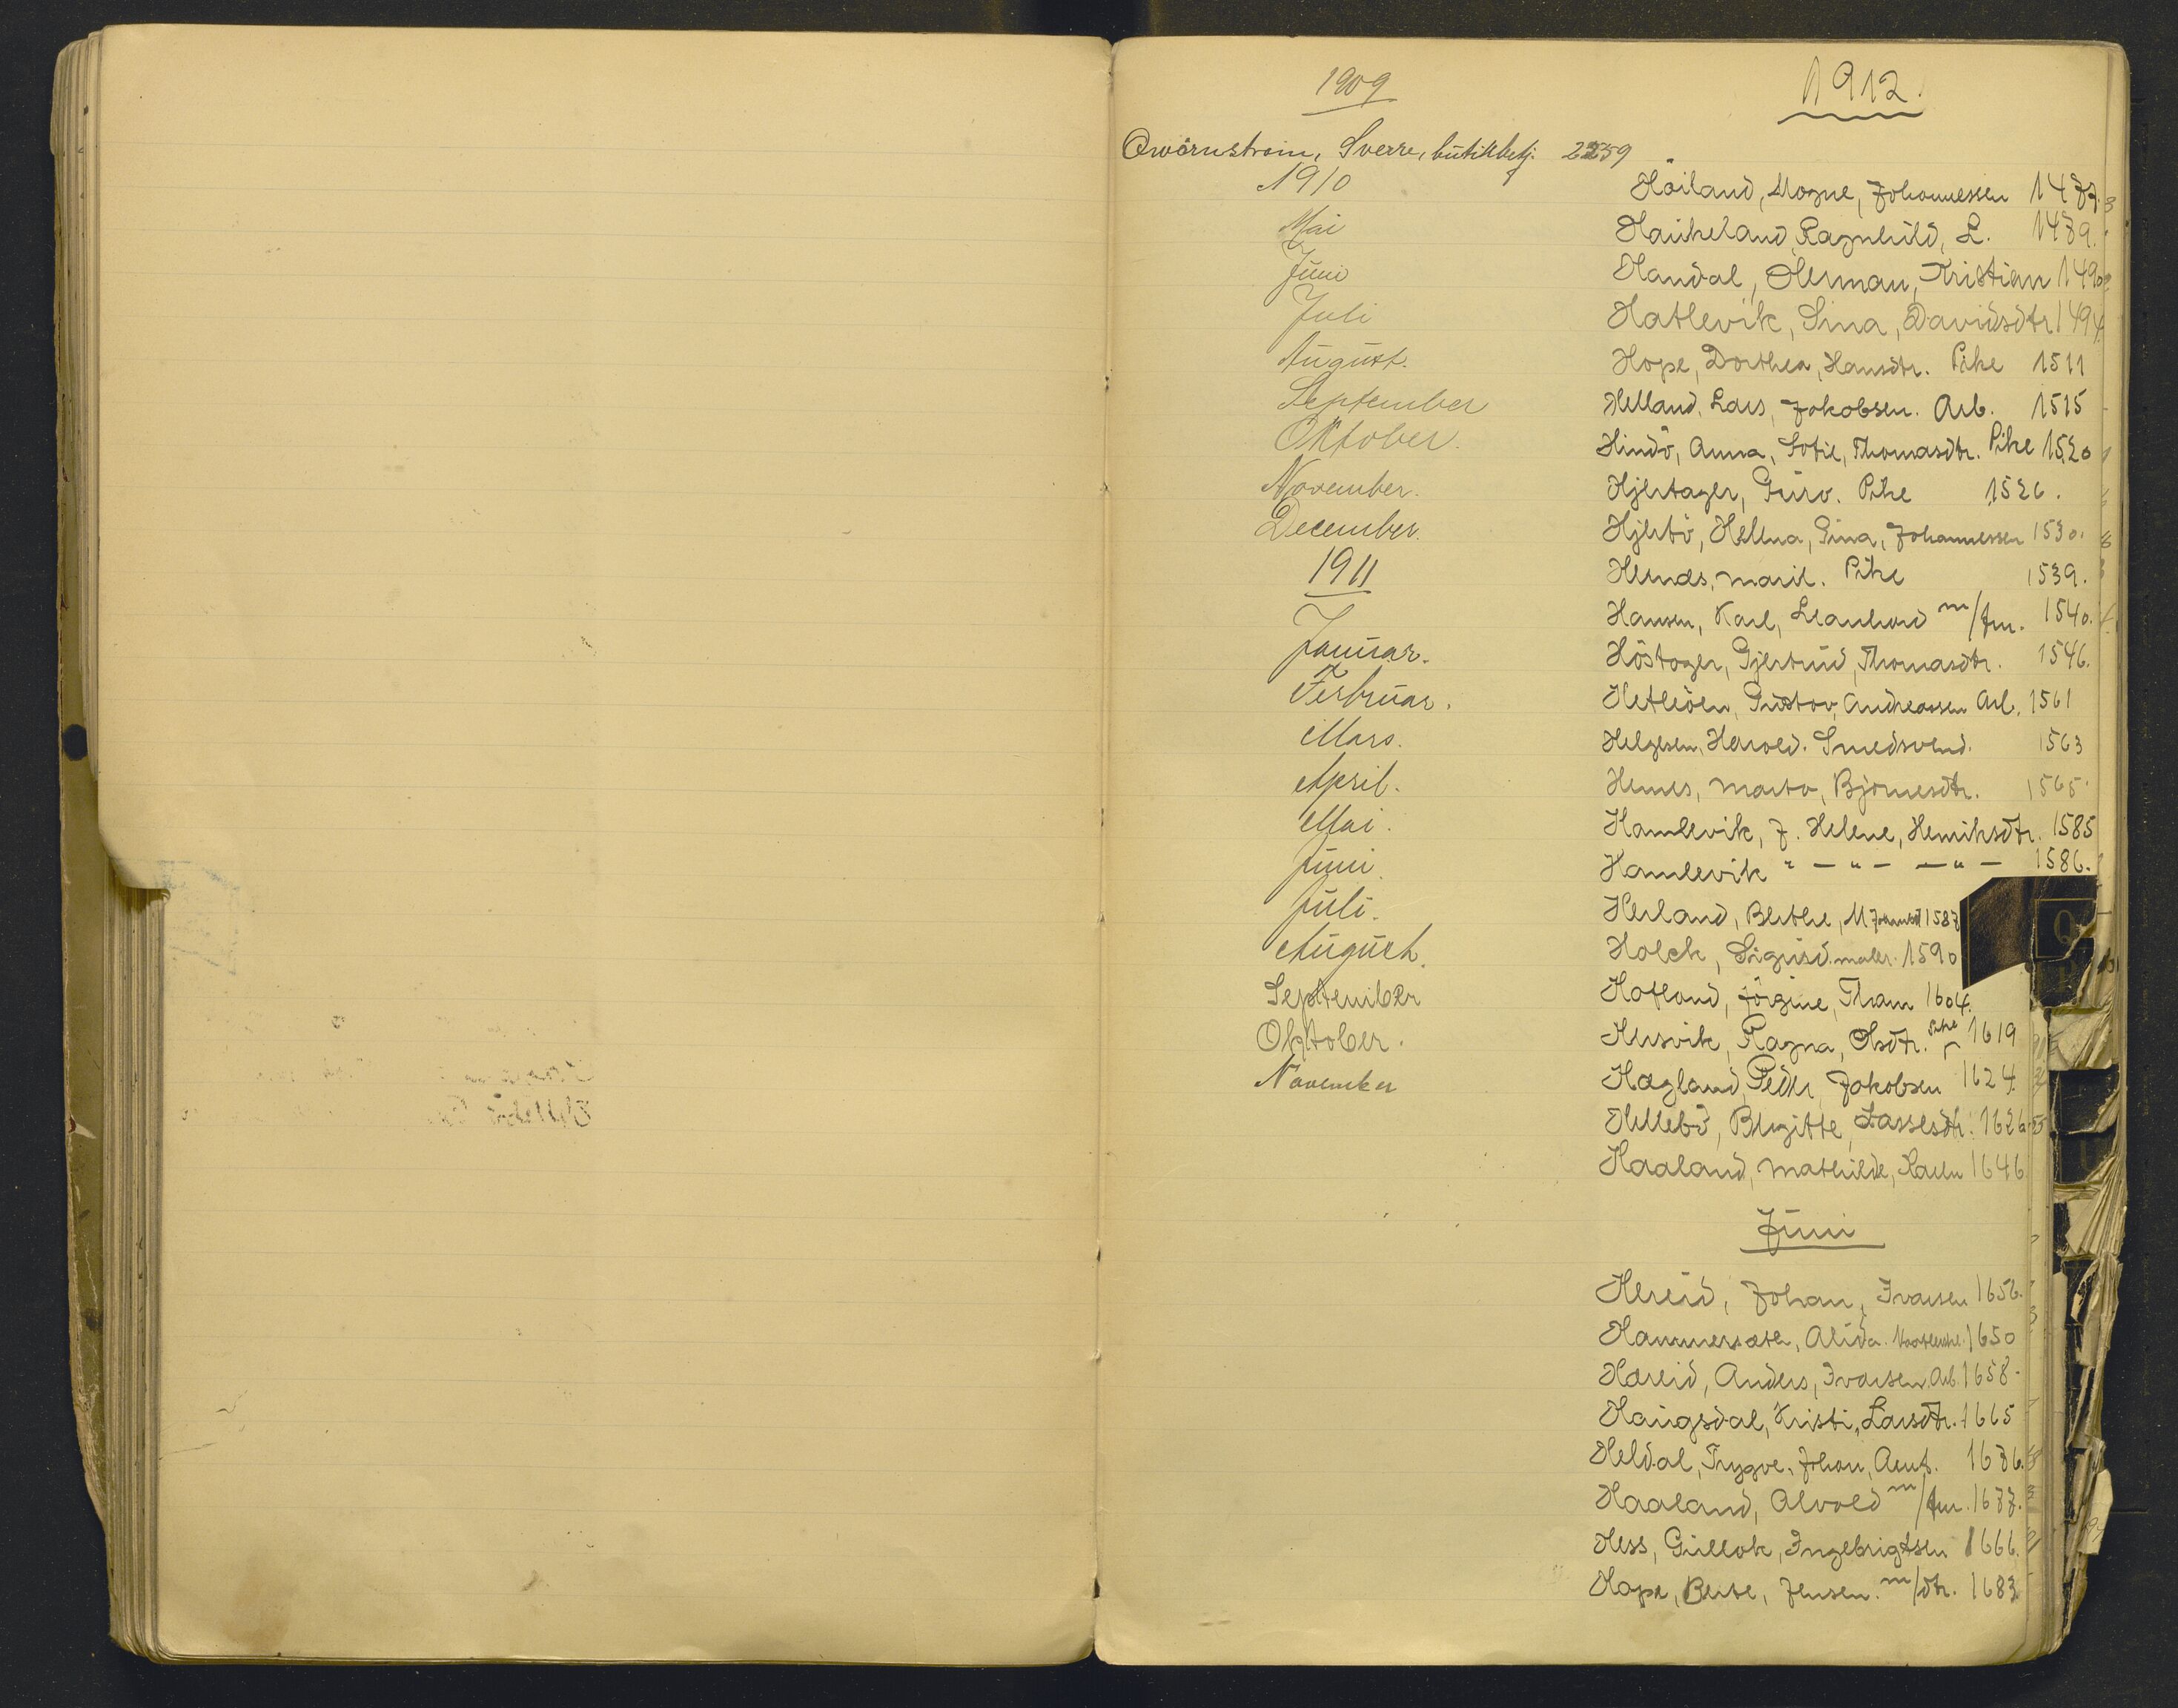 1909
Qwörnstrøm, Sverre, butikbetj. 2259
1910
Mai
Juni
Juli
August.
September
Oktober.
November.
December.
1911
Januar.
Ferbruar.
Mars.
April.
Mai.
Juni.
Juli.
August.
September
Oktober.
November
1912.
Höiland, Mogne, Johannessen 1477.
Haukeland, Ragnhild, L. 1479.
Handal, Herman, Kristian 1490
Hatlevik, Sina, Davidsdtr 1494.
Hope, Dorthea, Hansdtr. Pike 1511
Helland, Lars, Jakobsen. Arb. 1515
Hindö, Anna, Sofie, Thomasdtr. Pike 1520
Hjertager, Guro. Pike 1526.
Hjertö, Helena, Gina, Johannessen 1530.
Hernes, Marie. Pike 1539.
Hansen, Karl, Leanhard m/fm. 1540.
Höstager, Gjertrud, Thomasdtr. 1546.
Hetleöen, Gustav, Andreassen Arb. 1561
Helgesen, Harold. Smedsvend. 1563
Hernes, Marta, Björnesdtr. 1565.
Hamlevik, J. Helene, Henriksdtr. 1585
Hamlevik " — " — — " — 1586.
Herland, Berthe, M 1587
Holck, Sigurd. maler. 1590
Hatland, Jörgine, Tham 1604.
Husvik, Ragna, Olsdtr. Pike 1619
Hægland, Peder, Jakobsen 1624.
Hellebö, Birgitte, Lassesdtr. 1626
Haaland, Mathilde, Karen 1646
Juni
Hereid, Johan, Ivarsen 1656.
Hammersæter, Alida. 1650
Hæreid, Anders, Ivarsen, Arb. 1658.
Haugsdal, Kristi, Larsdtr. 1665
Heldal, Trygve, Johan, Amt. 1676.
Haaland, Alvold m/fm. 1677.
Hess, Gullok, Ingebrigtsen 1666.
Hope, Berte, Jensen. m/dtr. 1683
Q